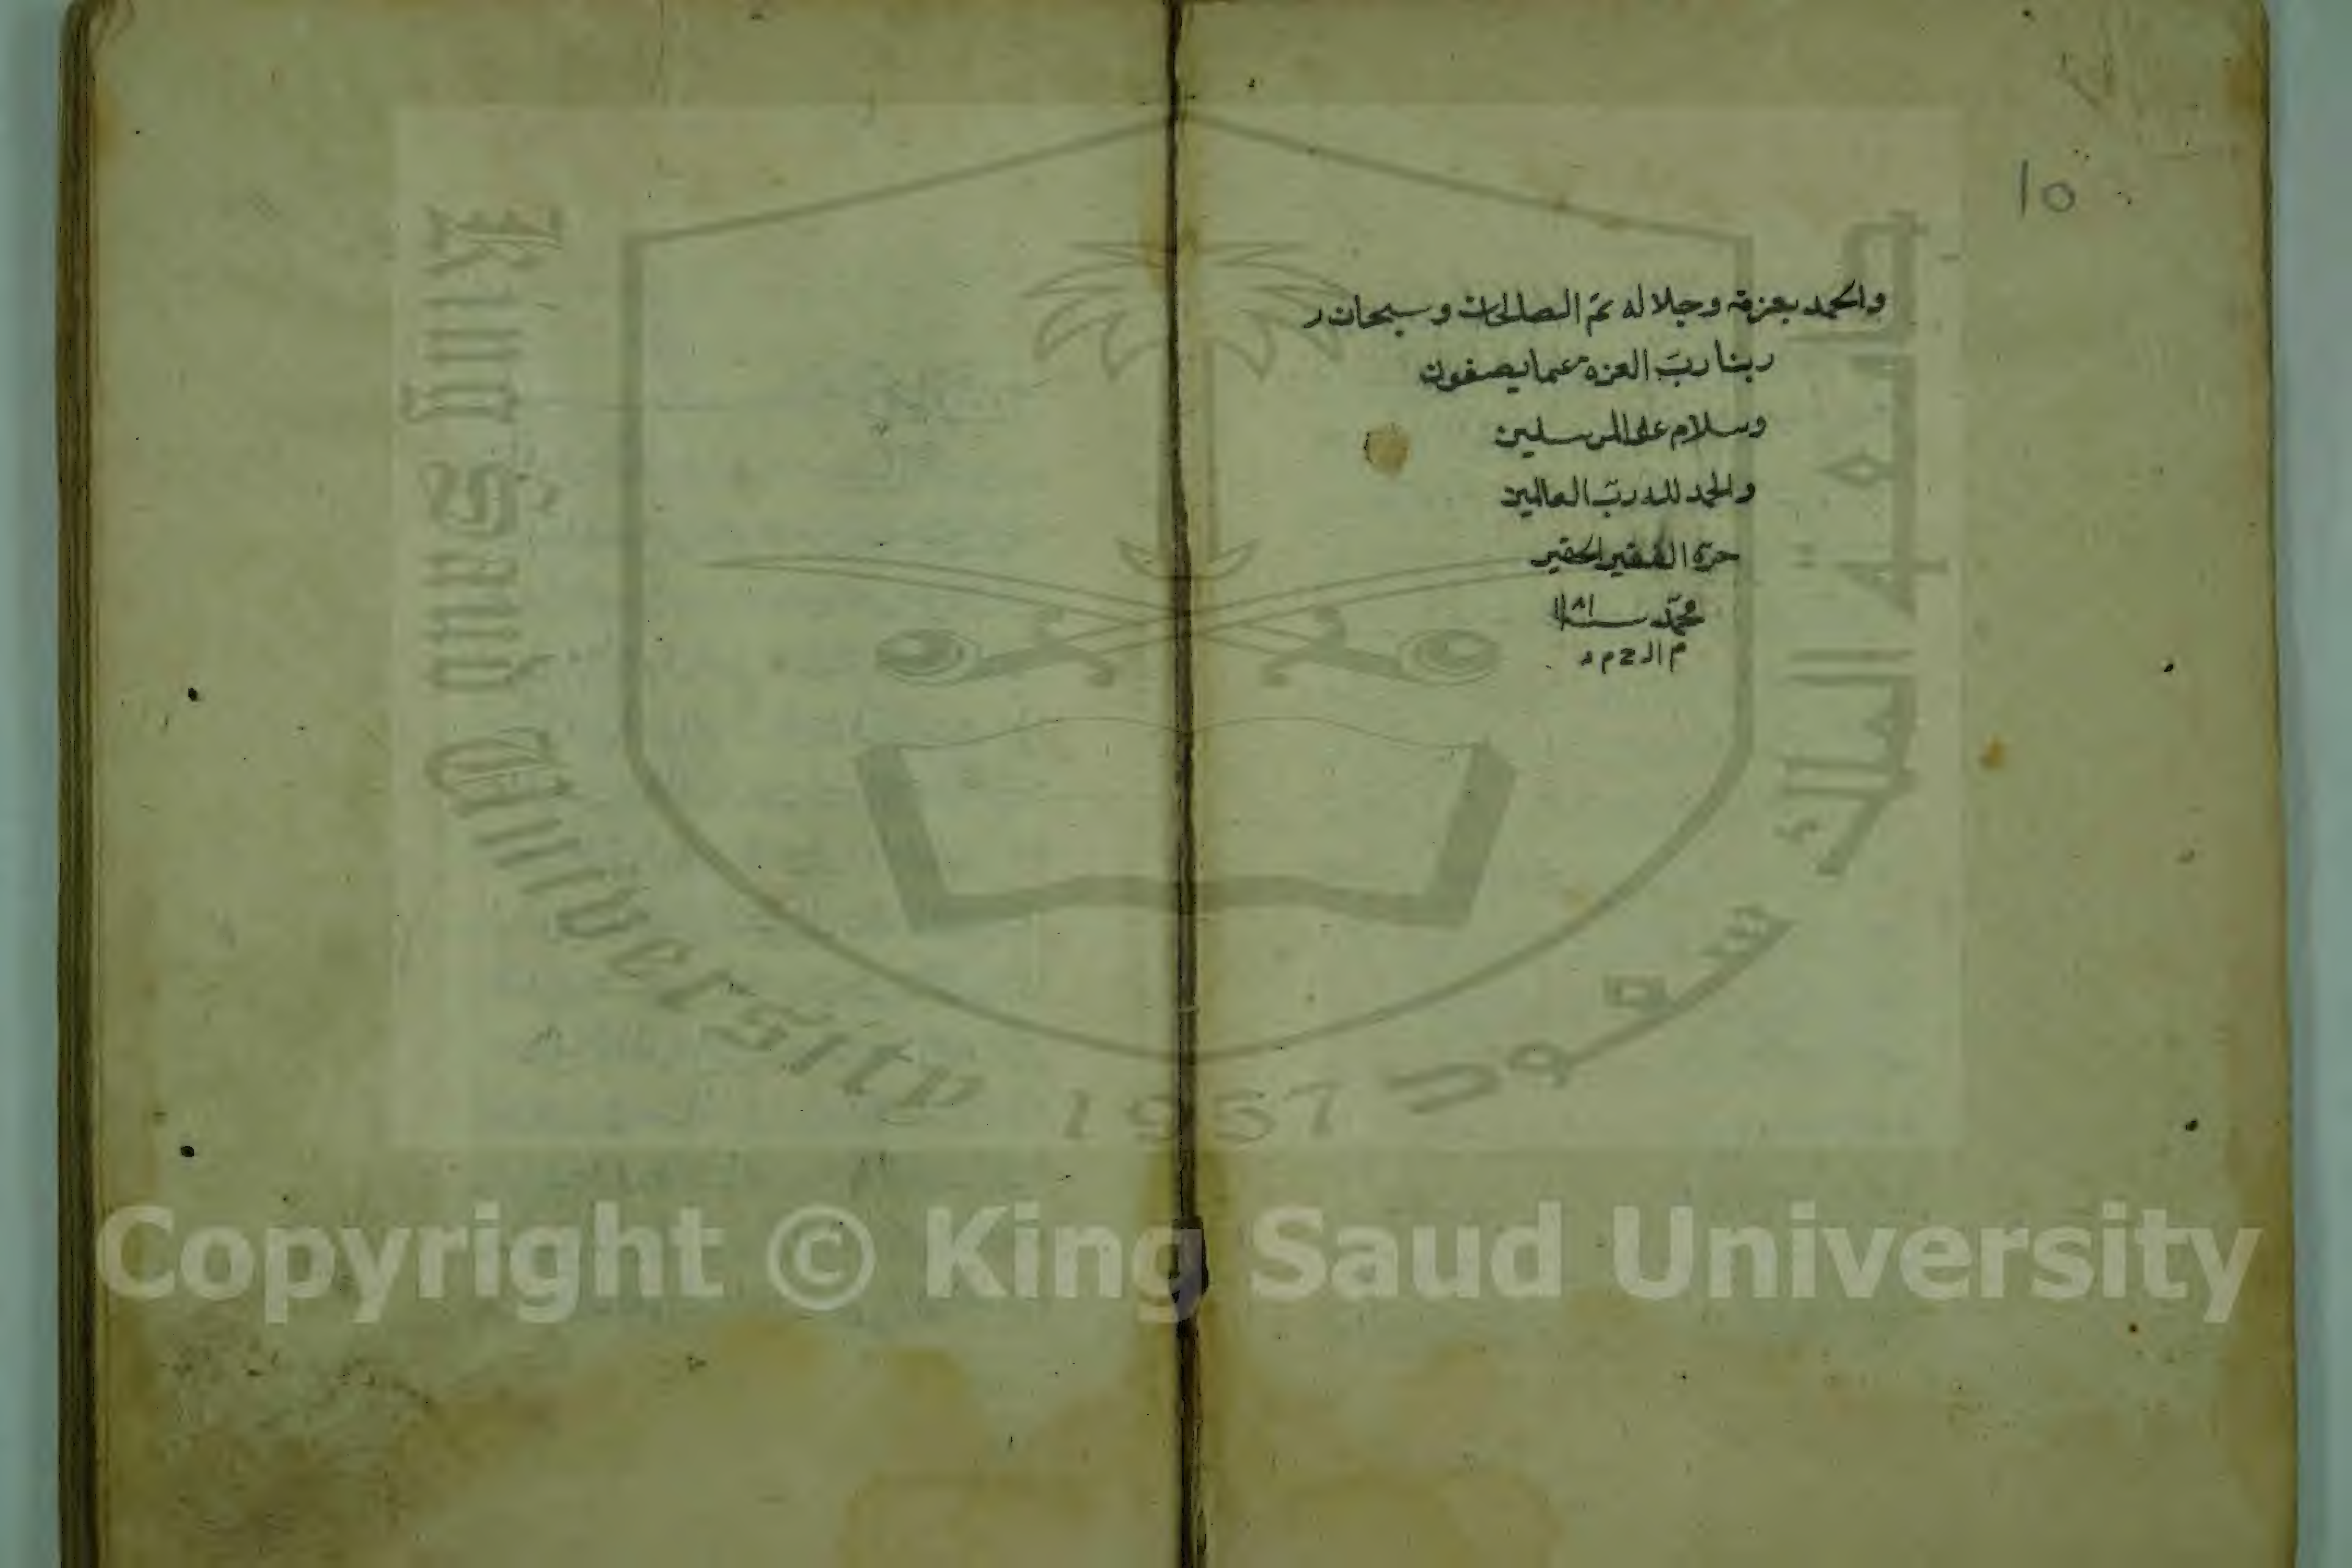 ١٥
والحمد بعزته وجلاله تمّ الصالحات وسبحان ر
ربنا ربّ العزة عما يصفون
وسلام على المرسلين
والحمد لله ربّ العالمين
حرّه الفقير الحقير
محمّد سنة
King Saud University
1957
جامعة الملك سعود
Copyright © King Saud University